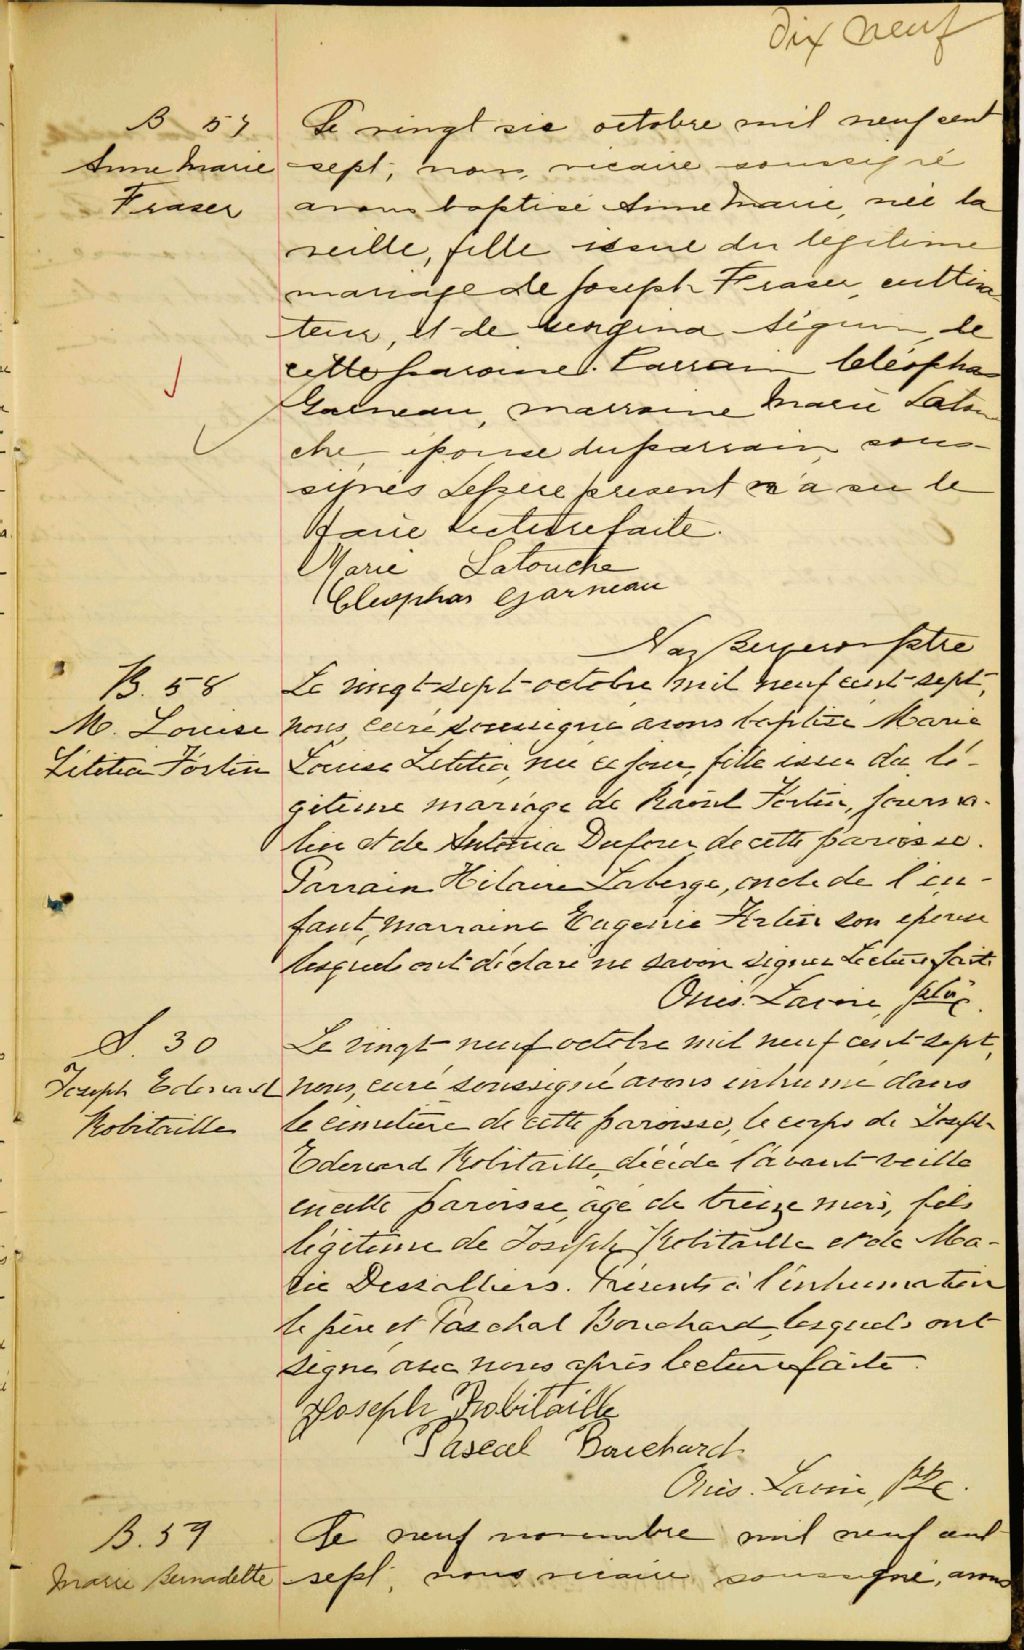 dix neuf
B 57
Anne Marie
Fraser
Le vingt six octobre mil neuf cent
sept, nous, vicaire soussigné
avons baptisé Anne Marie, née la
veille, fille issue du légitime
mariage de Joseph Fraser, cultiva-
teur, et de Georgina Séguin, de
cette paroisse. Parrain Cléophas
Garneau, marraine Marie Latou-
che, épouse du parrain, sous-
signés Le père présent n'a su le
faire Lecture faite.
Marie Latouche
Cléophas Garneau
Naz Bergeron ptre
B. 58
M. Louise
Létitia Fortin
Le vingt-sept octobre mil neuf cent-sept,
nous, curé soussigné avons baptisé Marie
Louise Létitia, née ce jour, fille issue du lé-
gitime mariage de Raoul Fortin, journa-
lier et de Antonia Dufour de cette paroisse.
Parrain Hilaire Laberge, oncle de l'en-
fant, marraine Eugénie Fortin son épouse
lesquels ont déclaré ne savoir signer Lecture faite
Onés. Lavoie, ptre
S. 30
Joseph Edouard
Robitaille
Le vingt neuf octobre mil neuf cent-sept,
nous, curé soussigné avons inhumé dans
le cimetière de cette paroisse, le corps de Joseph
Edouard Robitaille, décédé l'avant-veille
en cette paroisse, âgé de treize mois, fils
légitime de Joseph Robitaille et de Ma-
rie Dessalliers. Présents à l'inhumation
le père et Paschal Bouchard, lesquels ont
signé avec nous après lecture faite.
Joseph Robitaille
Pascal Bouchard
Onés. Lavoie,
B. 59
Marie Bernadette
Le neuf novembre mil neuf cent
sept, nous vicaire soussigné, avons